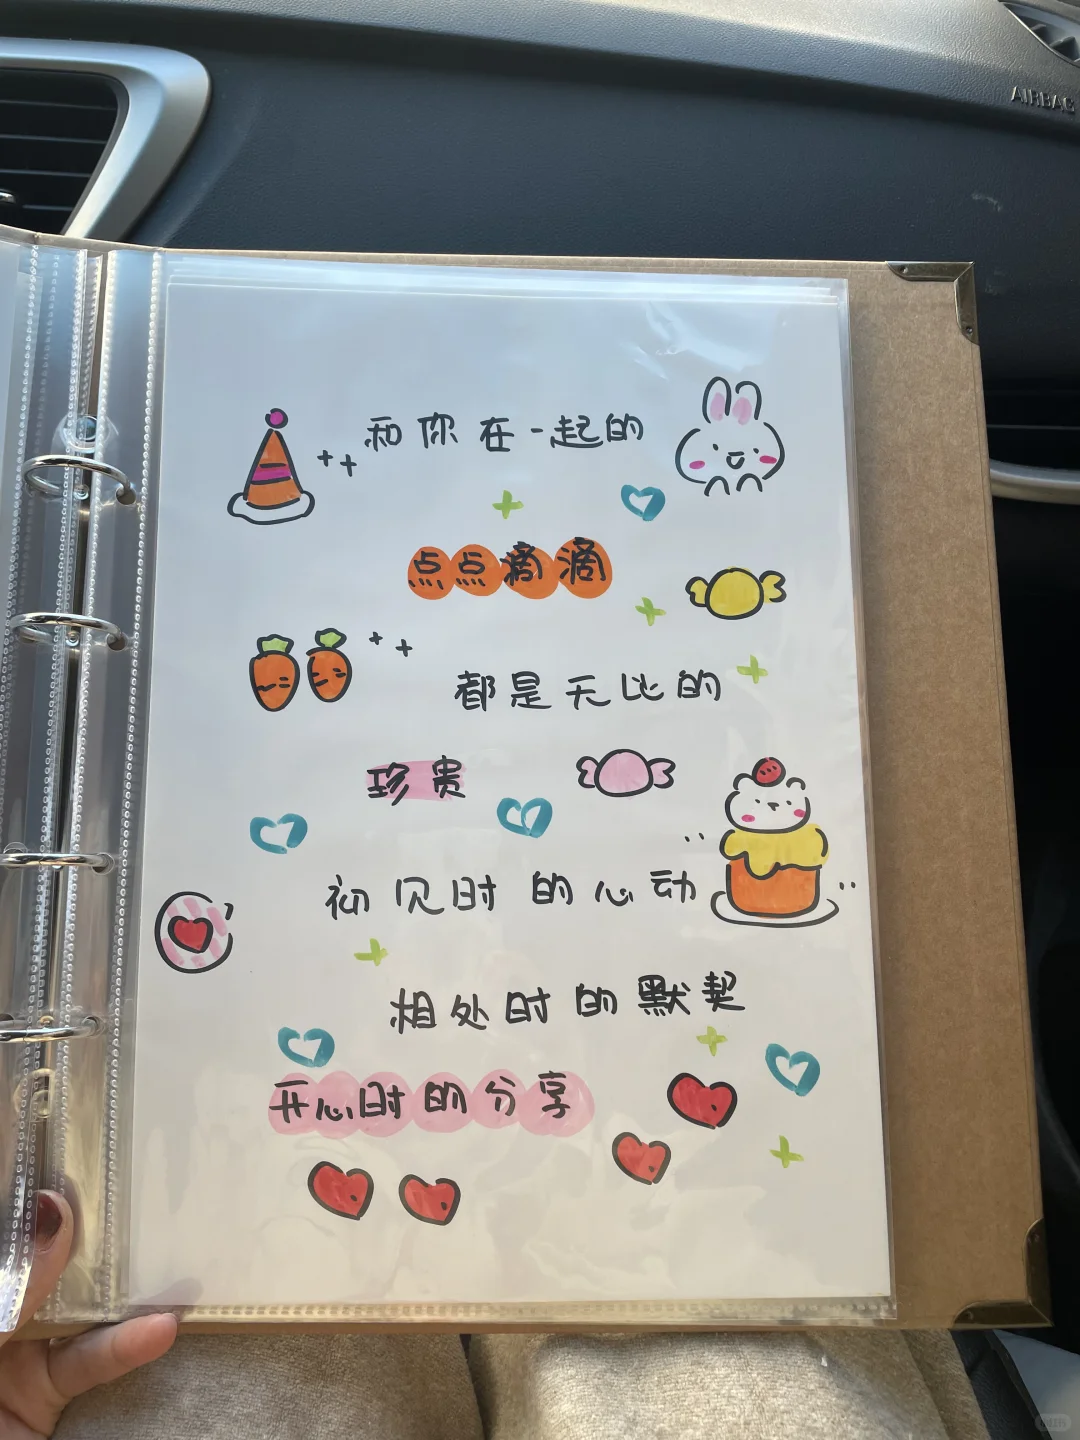 AIRBAG
和你在一起的
点点滴滴
都是无比的
珍贵
初见时的心动
相处时的默契
开心时的分享